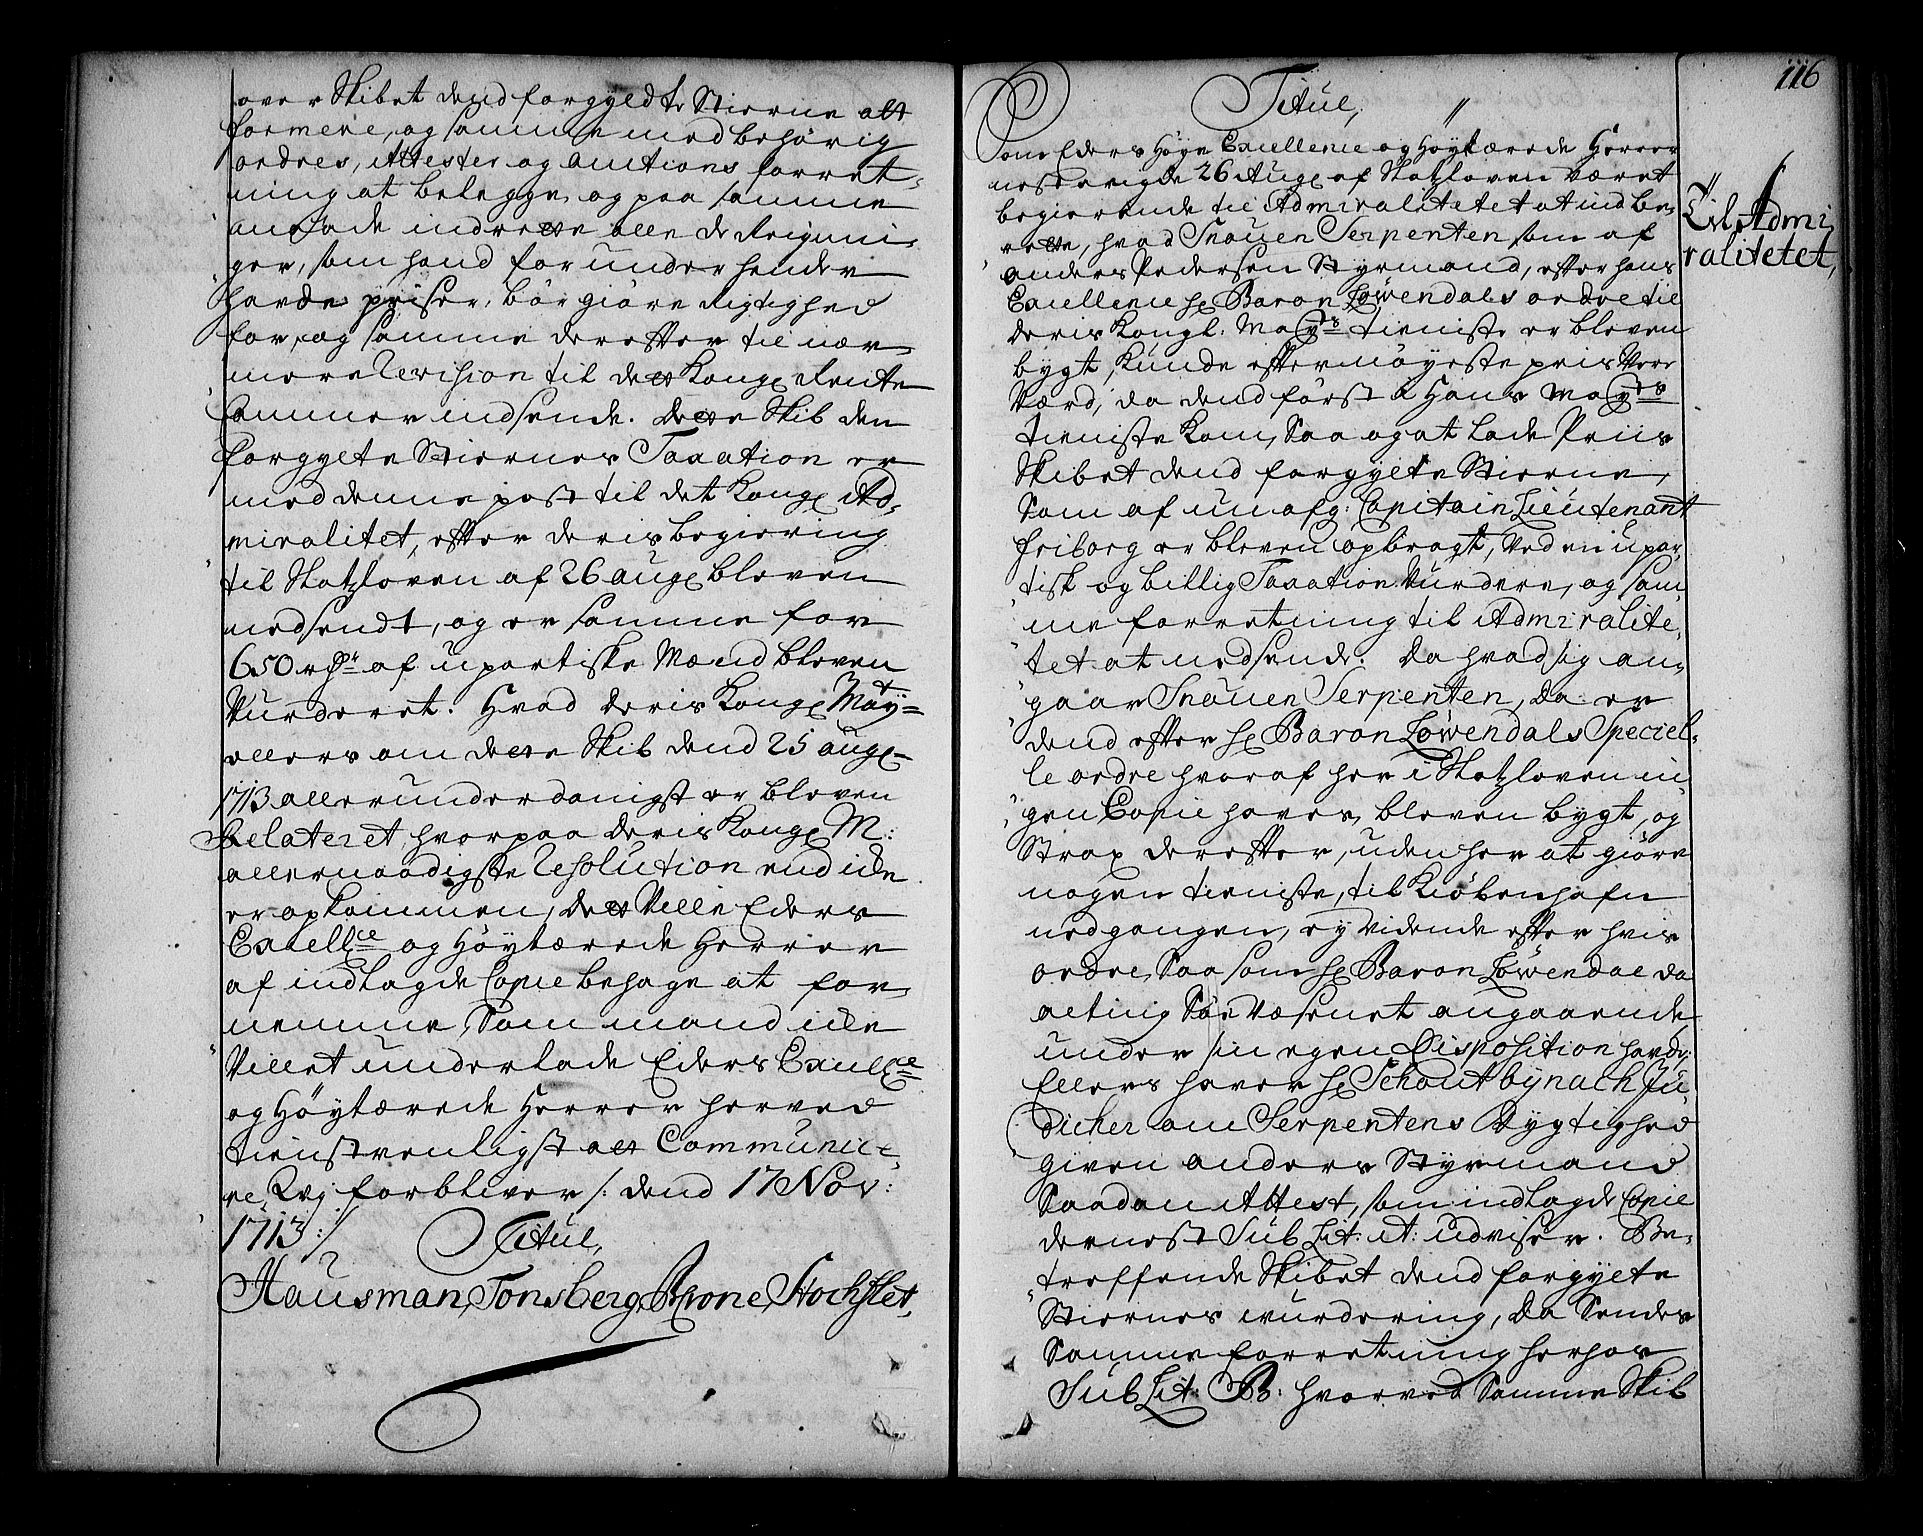 over Skibet dend forgyldte Stierne att
formere, og samme med behørig
ordres, Attester og auctions forret-
ning at belegge og paa samme
ansøde indrette alle de Reigni-
ger, som hand for under hender
havde priser, bør giøre Rigtighed
for, og samme derefter til nær-
mere Revision til det Kongl Rente
Cammer indsende. Dette Skib den
forgylte Stiernes Taxation er
med denne post til det Kongl Ad-
miralitet, efter deris begiering
til Slotzloven af 26 augl bleven
nedsendt, og er samme for
650 rdr af upartiske Mænd bleven
Vurderet. Hvad deris Kongl May-
ellers om dette Skib dend 25 augl
1713 allerunderdanigst er bleven
Relateret, hvorpaa deris Kongl M:
allernaadigste Resolution end icke
er opkommen, dett Ville Eders
Excellce og Høytærede Herrer
af indlagde Copie behage at for-
nemme, Som mand icke
Villet underlade Eders Excellce
og Høytærede Herrer herved
tienstvenligst att Communice-
re, Og forbliver /: dend 17 Nov:
1713 :/
Titul,
Hausman, Tonsberg, Krone, Stochflet,
116
Titul,
Til Admi
ralitetet,
Som Eders Høye Excellence og Høytærede Herrer
nestvigde 26 Augl af Slotzloven været
begierende til Admiralitetet at indbe-
rette, hvad Snauen Serpenten som af
anders Pedersen Styrmand, efter hans
Excellence Hr Baron Løwendals ordre til
deris Kongl. Mayts tieniste er bleven
bygt, kunde efter nøyeste pris Vere
Værd, da dend først i Hans Mayts
tieniste kom, Saa og at lade Priis
Skibet dend forgylte Stierne,
Som af unafg: Capitain Lieutenant
friborg er bleven opbragt, Ved en upar-
tisk og billig Taxation Vurdere, og sam-
me forretning til Admiralite-
tet at nedsende. Da hvad sig an-
gaar Snauen Serpenten, da er
dend efter Hr Baron Løwendals Speciel-
le ordre hvoraf her i Slotzloven in-
gen Copie haves, bleven bygt, og
Strax derefter, uden her at giøre
nogen tieniste, til Kiøbenhafn
nedgangen, ey Vidende efter hvis
ordre, Saasom Hr Baron Løwendal da
alting Søe Væsenet angaaende
under sin egen Disposition havde.
Ellers haver Hr Schoutbynach Ju-
dicher om Serpentens Dygtighed
given anders Styrmand
Saadan Attest, som indlagde Copie
dernest Sub Lit: A: udviser. Be-
treffende Skibet dend forgylte
Stiernes wurdering, da Sendes
Samme forretning herhos
Sub Lit: B: hvorved Samme Skib